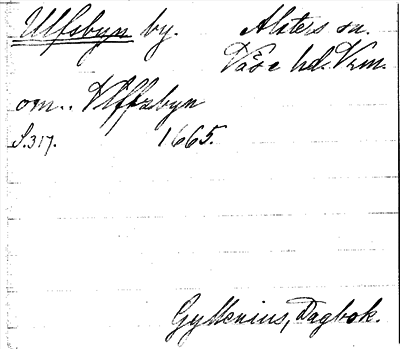 Ulfsbyn by. Alsters sn.
Väse hd. Vrm.
om.. Ulffzbyn
S.317. 1665.
Gyllenius, Dagbok.